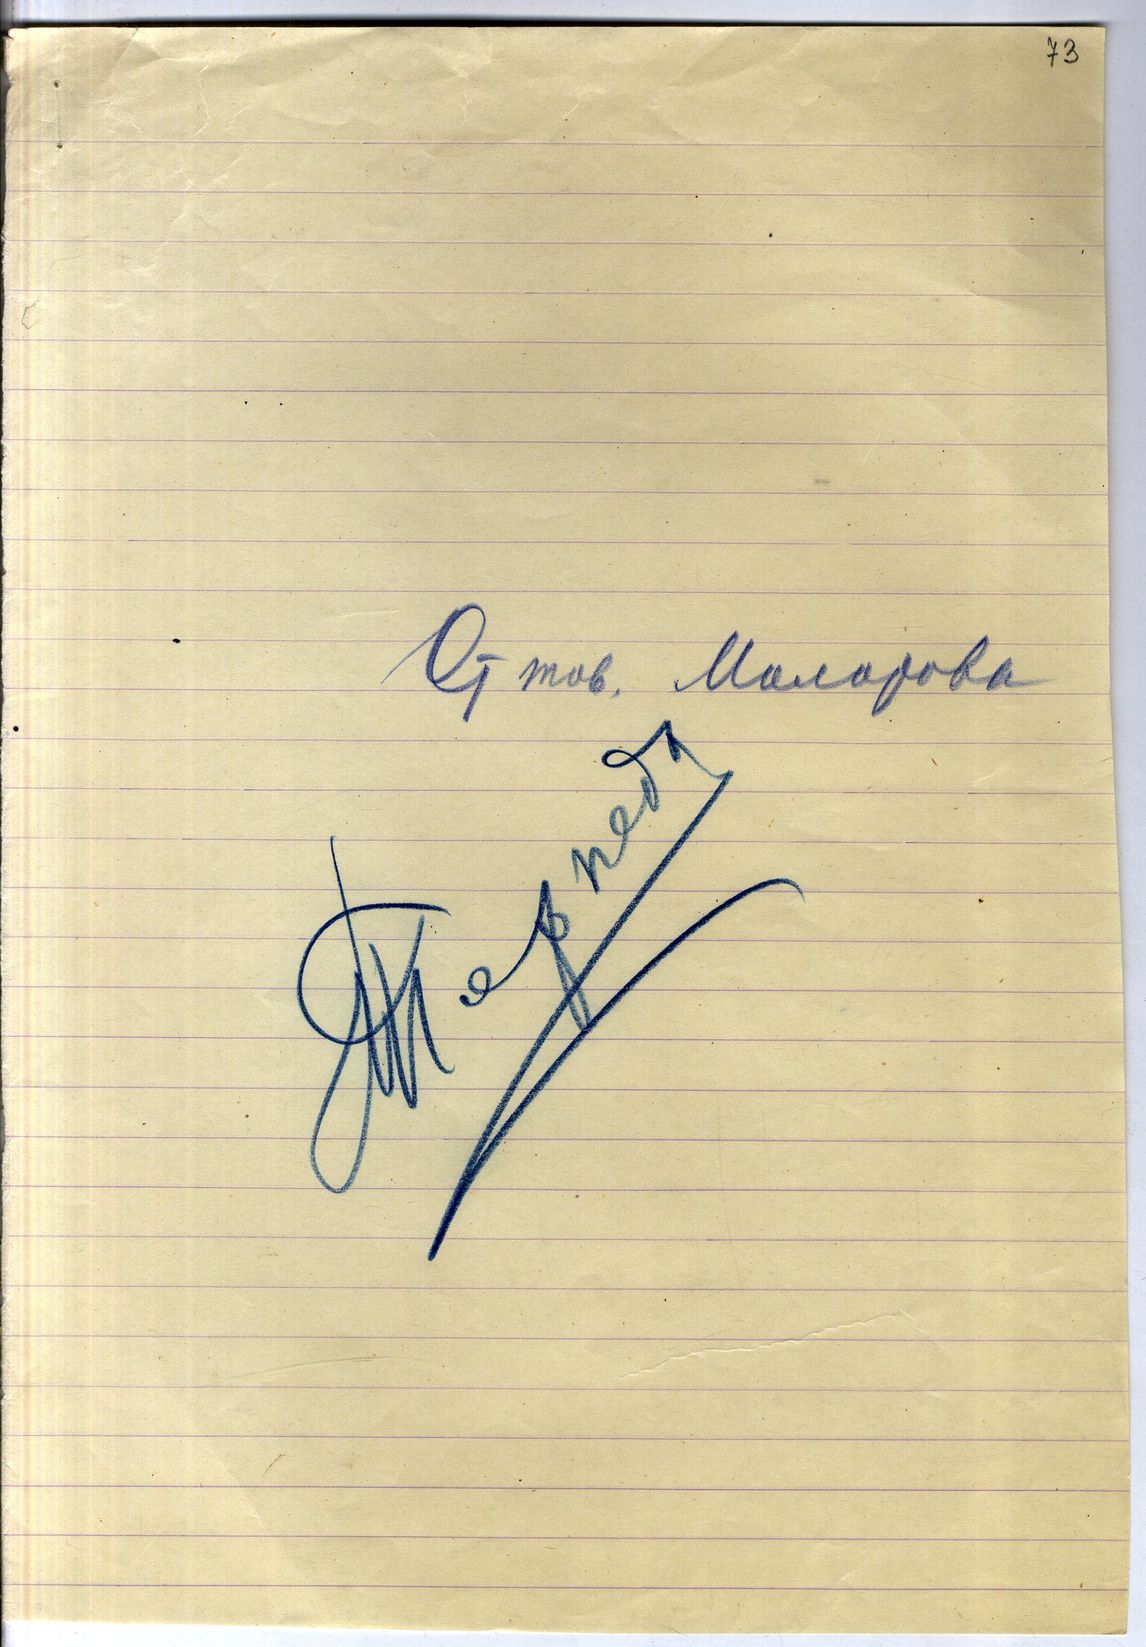 73
От тов. Маларова